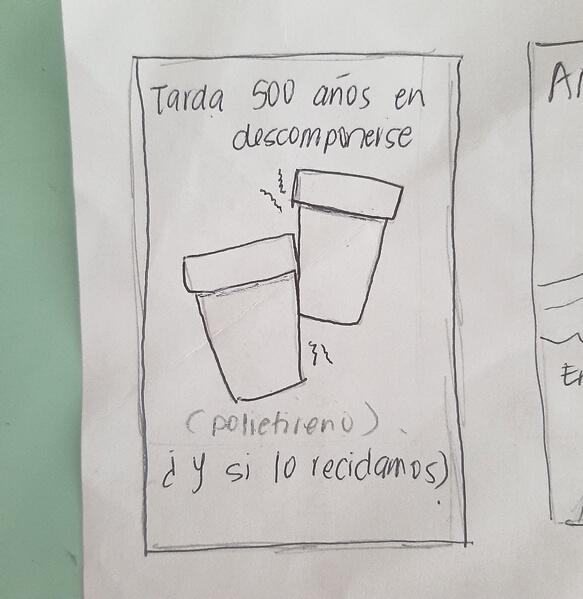 Tarda 500 años en
descomponerse
(polietireno).
¿ y si lo recidamos)
.
Er